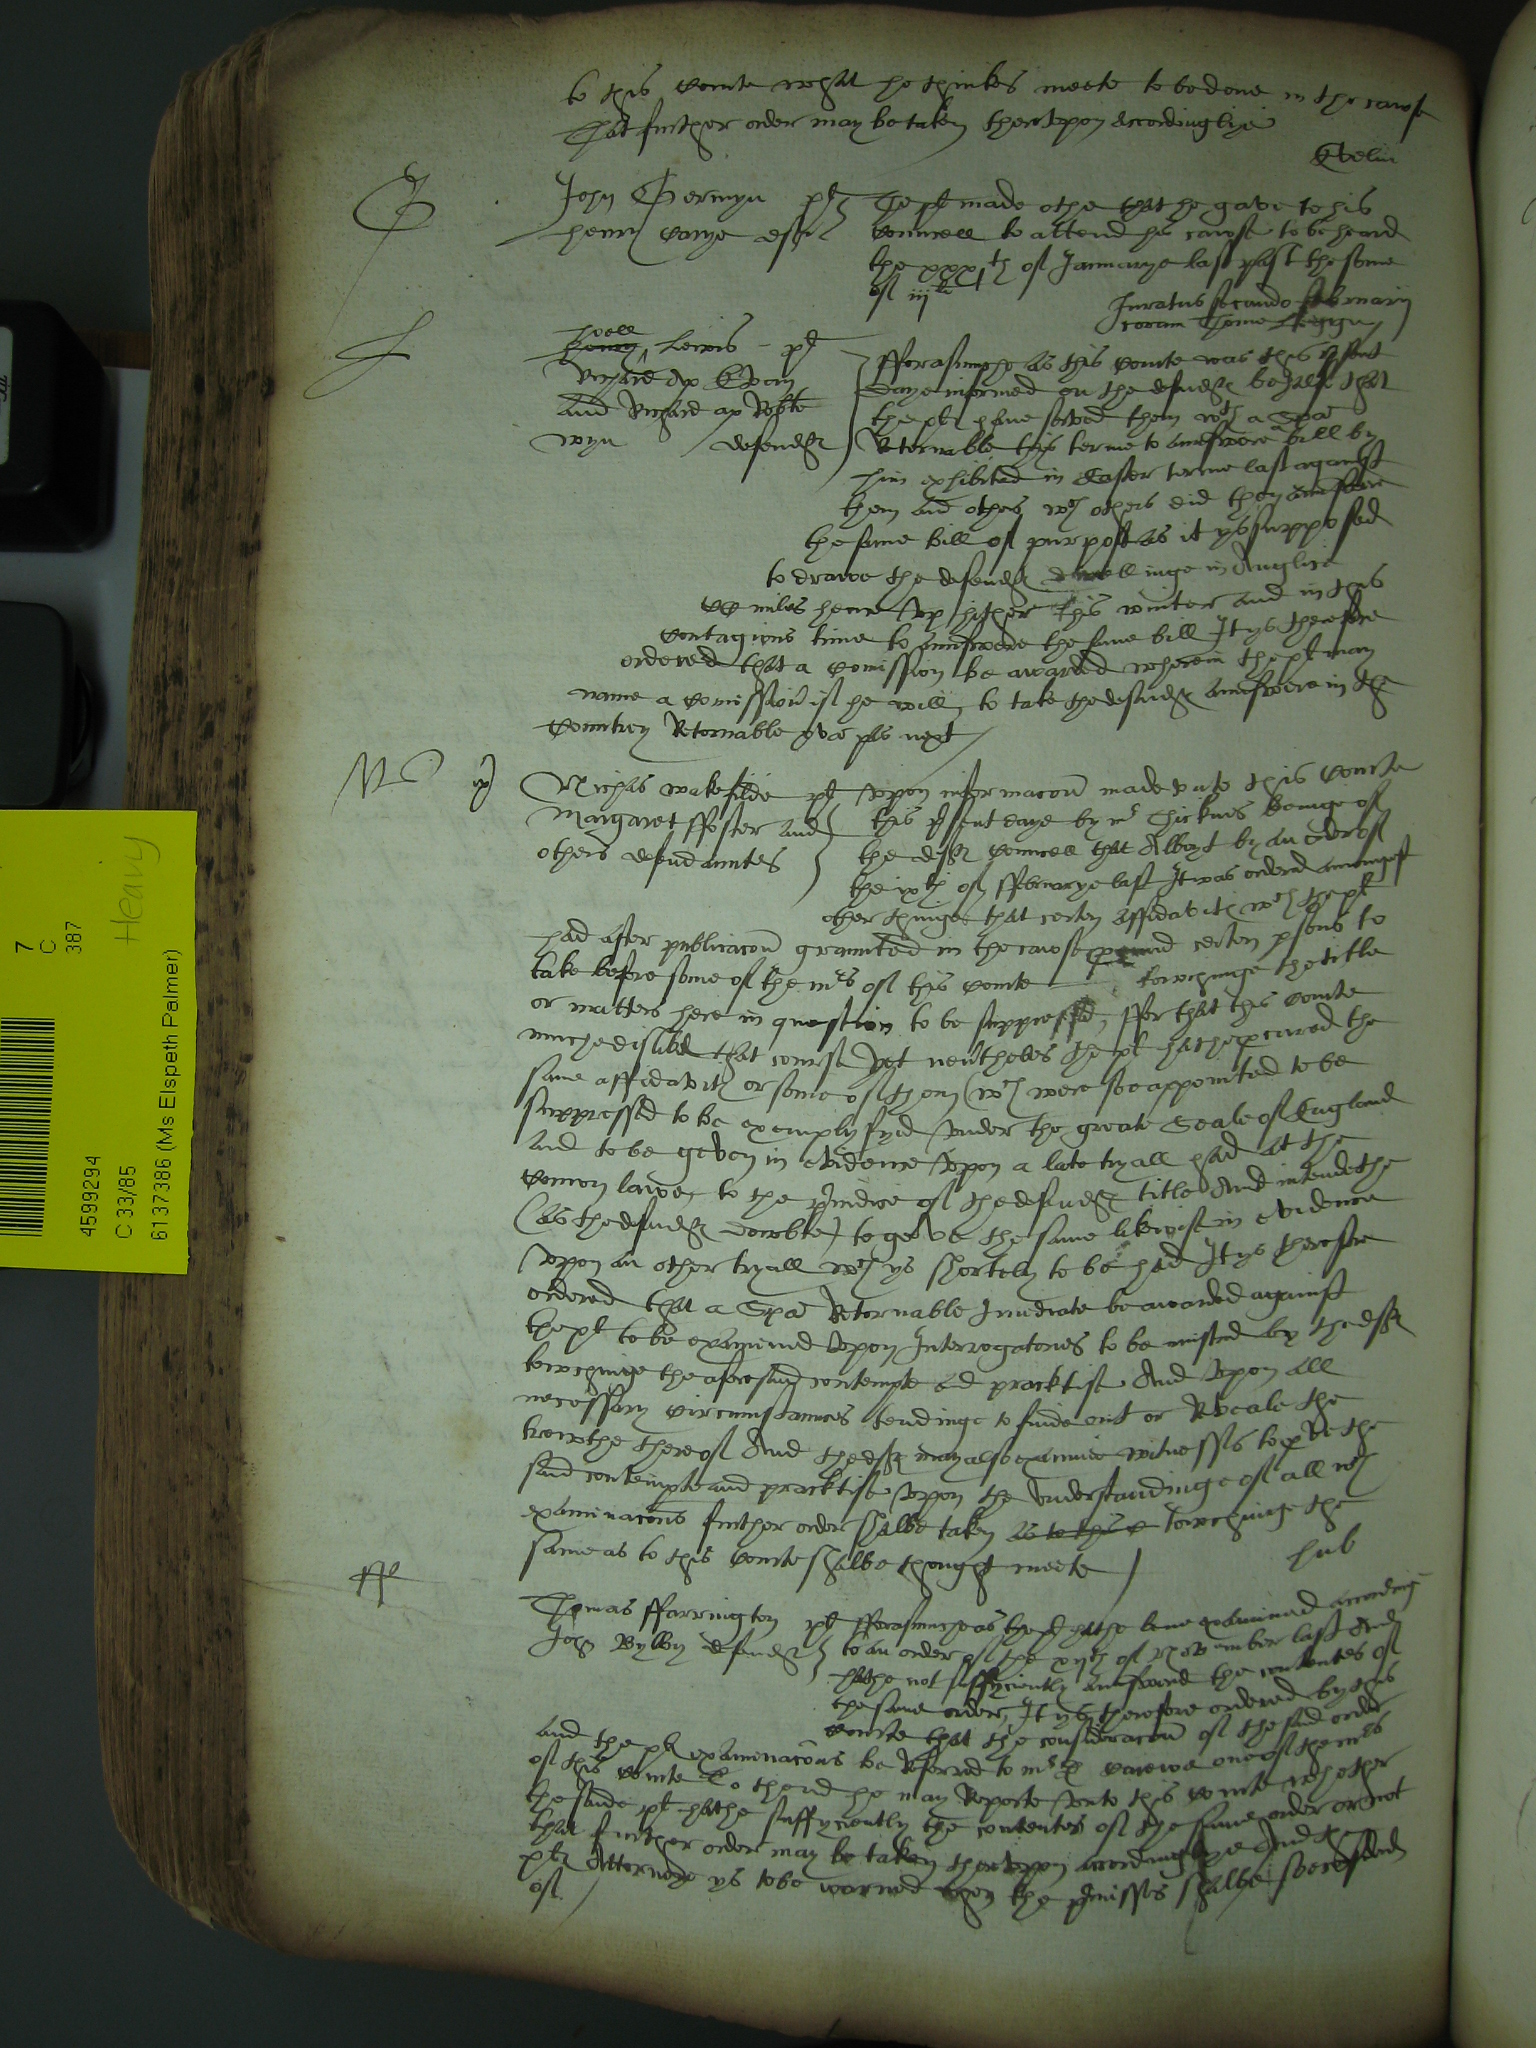 to this Courte what he thinkes meete to be done in the cawse
That further order may be taken therevpon accordinglye
Evelin
John Germyn pl The pl made othe that he gave to his
henry def Councell to attend his cawse to be heard
the xxxth of Januarye last past the some
of iijli
Juratus secundo februarij
coram Thome Legge
J
howell
henry Lewis - pl
Richard Ap Evan
and Richard ap Robte
wyn defendtes
fforasmuche as this Courte was this psent
daye informed on the defendtes behalf that
the pl have served them wth a Spa
Retornable this terme to aunswere a bill by
him exhibited in Easter terme last against
them and others wch others did then aunswere
the same bill of purpose as it ys supposed
to drawe the defendtes dwellinge in Anglice
miles hence vp hither this winter and in this
Contagious time to aunswere the same bill It ys therefore
ordered that a Comission be awarded wherein the pl may
name a Comissioner if he will, to take the defendtes aunswere in the
Countrey Retornable next
Nichas wakefilde pl
Margaret ffoster and
others defendauntes
vpon informacon made vnto this Courte
this psent daye by mr Chicknes beinge of
the deftes Councell that Albeyt by an order of
the ixth of ffebruarye last It was ordered amongest
other thinges that certen affidavites wch the pl
had after publicacon graunted in the cawse certen psons to
take before some of the mrs of this Courte towchinge the title
or matters here in question to be suppressed, ffor that this Courte
muche disliked that course Yet neutheles the pl hathe pcured the
same affidavites or some of them (wch were soe appointed to be
suppressed to be exemplyfyed vnder the greate Seale of England
and to be geven in evidence vpon a late tryall had at the
Comon lawe, to the piudice of the defendtes title And intendethe
(as the defendtes dowbte) to geve the same likewise in evidence
vpon an other tryall wch ys shortely to be had It ys therefore
ordered that a Spa Retornable Imediate be awarded against
the pl to be examined vpon Interrogatories to be mistred by the deftes
towchinge the aforesaid contempte and practise And vpon all
necessary circumstaunces tendinge to finde out or Reveale the
trewthe thereof And the deftes may also examine witnesses to prve the
said contempte and practise vpon the vnderstandinge of all wch
examinacons further order shalbe taken as to this C towchinge the
same as to this Courte shalbe thought meete
hub
ff
Thomas ffarrington pl
John Bylby defendtes
fforasmuche as the pl hathe bene examined according
to an order of the xijth of November last And
hathe not sufficiently aunswered the contentes of
the same order, It ys therefore ordered by this
Courte that the consideracon of the said order
and the pl examenacons be Referred to mr D Carewe one of the mrs
of this Courte To thend he may Reporte vnto this Courte whether
the saide pl hathe suffyciently the contentes of the same order or not
that further order may be taken therevpon accordinglye And the
ples Attorneye ys to be warned when the pmisses shalbe soe
of
7
C
387
Heavy
4599294
C 33/85
6137386 (Ms Elspeth Palmer)